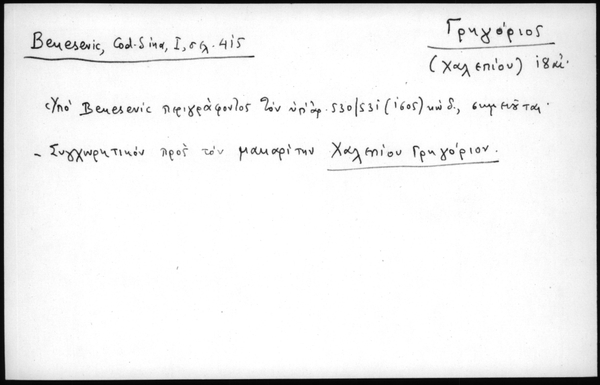 Benesevic, Cod. Sina, I, σελ. 415
Γρηγόριος
(Χαλεπίου) 18 αἰ.
Ὑπὸ Benesevic περιγράφοντος τὸν ὑπ' ἀρ. 530/531 (160ς) κώδ., σημειοῦται.
- Συγχωρητικόν πρὸς τὸν μακαρίτην Χαλεπίου Γρηγόριον.